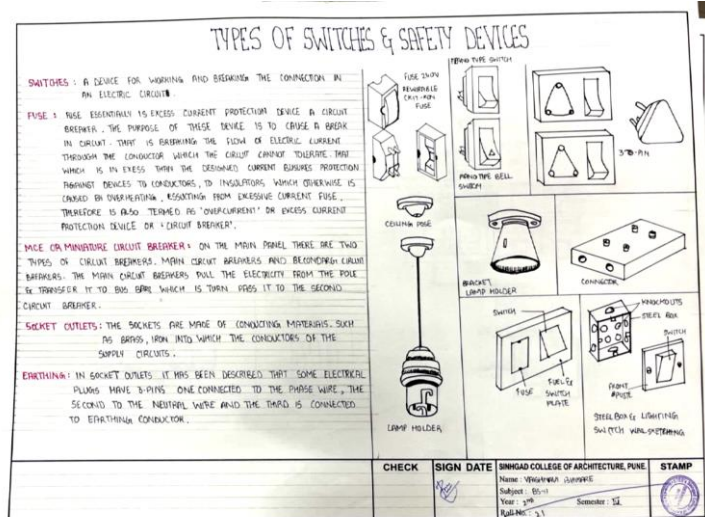 TYPES OF SWITCHES & SAFETY DEVICES
SWITCHES : A DEVICE FOR WORKING AND BREAKING THE CONNECTION IN
AN ELECTRIC CIRCUIT.
FUSE : FUSE ESSENTIALLY IS EXCESS CURRENT PROTECTION DEVICE A CIRCUIT
BREAKER. THE PURPOSE OF THESE DEVICE IS TO CAUSE A BREAK
IN CIRCUIT. THAT IS BREAKING THE FLOW OF ELECTRIC CURRENT
THROUGH THE CONDUCTOR WHICH THE CIRCUIT CANNOT TOLERATE. THAT
WHICH IS IN EXESS THAN THE DESIGNED CURRENT ENSURES PROTECTION
AGAINST DEVICES TO CONDUCTORS, TO INSULATORS WHICH OTHERWISE IS
CAUSED BY OVERHEATING, RESULTING FROM EXCESSIVE CURRENT FUSE,
THEREFORE IS ALSO TERMED AS "OVERCURRENT" OR EXCESS CURRENT
PROTECTION DEVICE OR "CIRCUIT BREAKER".
MCE OR MINIATURE CIRCUIT BREAKER : ON THE MAIN PANEL THERE ARE TWO
TYPES OF CIRCUIT BREAKERS. MAIN CIRCUIT BREAKERS AND SECONDARY CIRCUIT
BREAKERS. THE MAIN CIRCUIT BREAKERS PULL THE ELECTRICITY FROM THE POLE
& TRANSFER IT TO BUS BAR WHICH IS TURN PASS IT TO THE SECOND
CIRCUIT BREAKER.
SOCKET OUTLETS : THE SOCKETS ARE MADE OF CONDUCTING MATERIALS. SUCH
AS BRASS, IRON INTO WHICH THE CONDUCTORS OF THE
SUPPLY CIRCUITS.
EARTHING : IN SOCKET OUTLETS IT HAS BEEN DESCRIBED THAT SOME ELECTRICAL
PLUGS HAVE 3-PINS ONE CONNECTED TO THE PHASE WIRE, THE
SECOND TO THE NEUTRAL WIRE AND THE THIRD IS CONNECTED
TO EARTHING CONDUCTOR.
FUSE 240V
REWIRABLE
FUSE
PIANO TYPE SWITCH
PIANO TYPE BELL
SWITCH
3-PIN
CEILING ROSE
LAMP HOLDER
BRACKET
LAMP HOLDER
CONNECTOR
SWITCH
FUSE
FUSE &
SWITCH
PLATE
KNOCKOUTS
STEEL BOX
SWITCH
FRONT
STEEL BOX & LIGHTING
SWITCH
CHECK
SIGN DATE
SINHGAD COLLEGE OF ARCHITECTURE, PUNE.
Name :
Subject : BS-II
Year : 2nd
Semester :
Roll No. : 21
STAMP